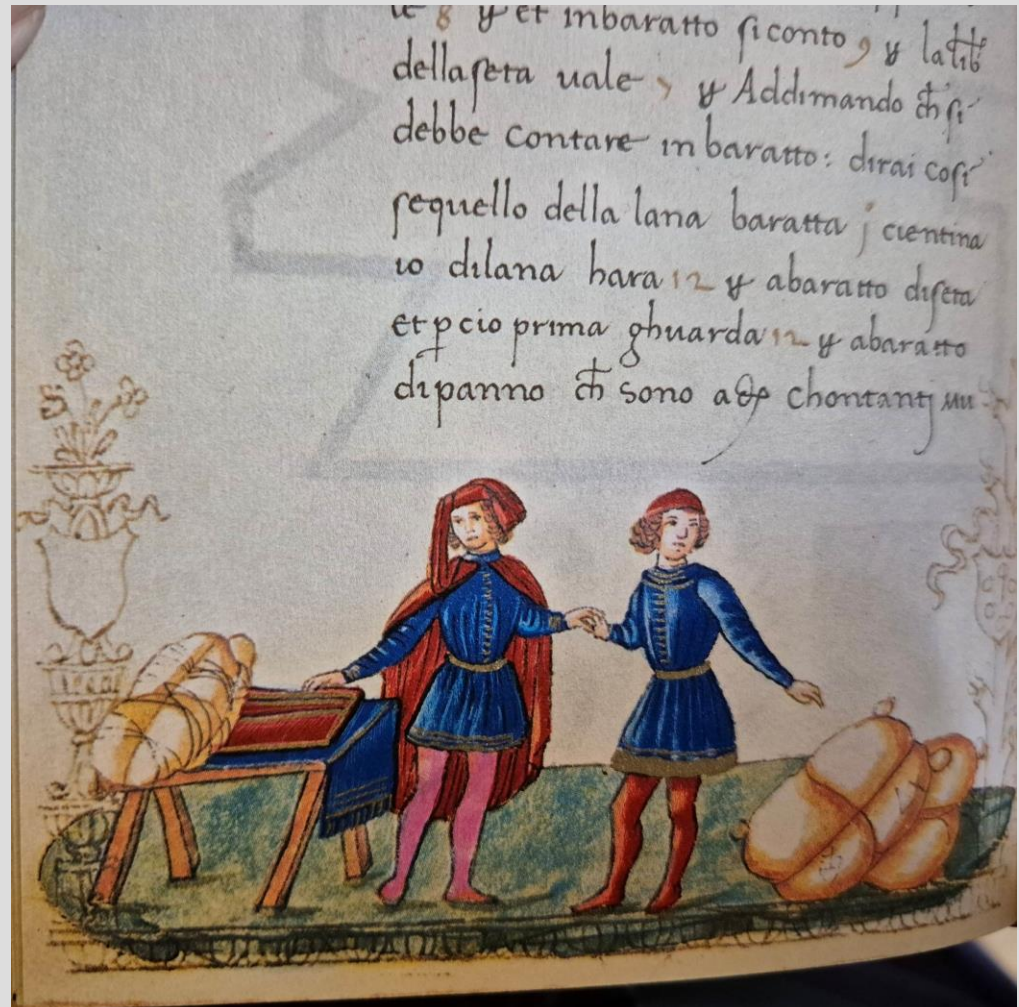 le 8 y et inbaratto si conto 9 y la
della seta uale y Addimando ch si
debbe contare in baratto: dirai cosi
se quello della lana baratta j cientina
io dilana hara 12 y abaratto diseta
et p cio prima ghuarda 12 y abaratto
di panno ch sono a chontantj uu